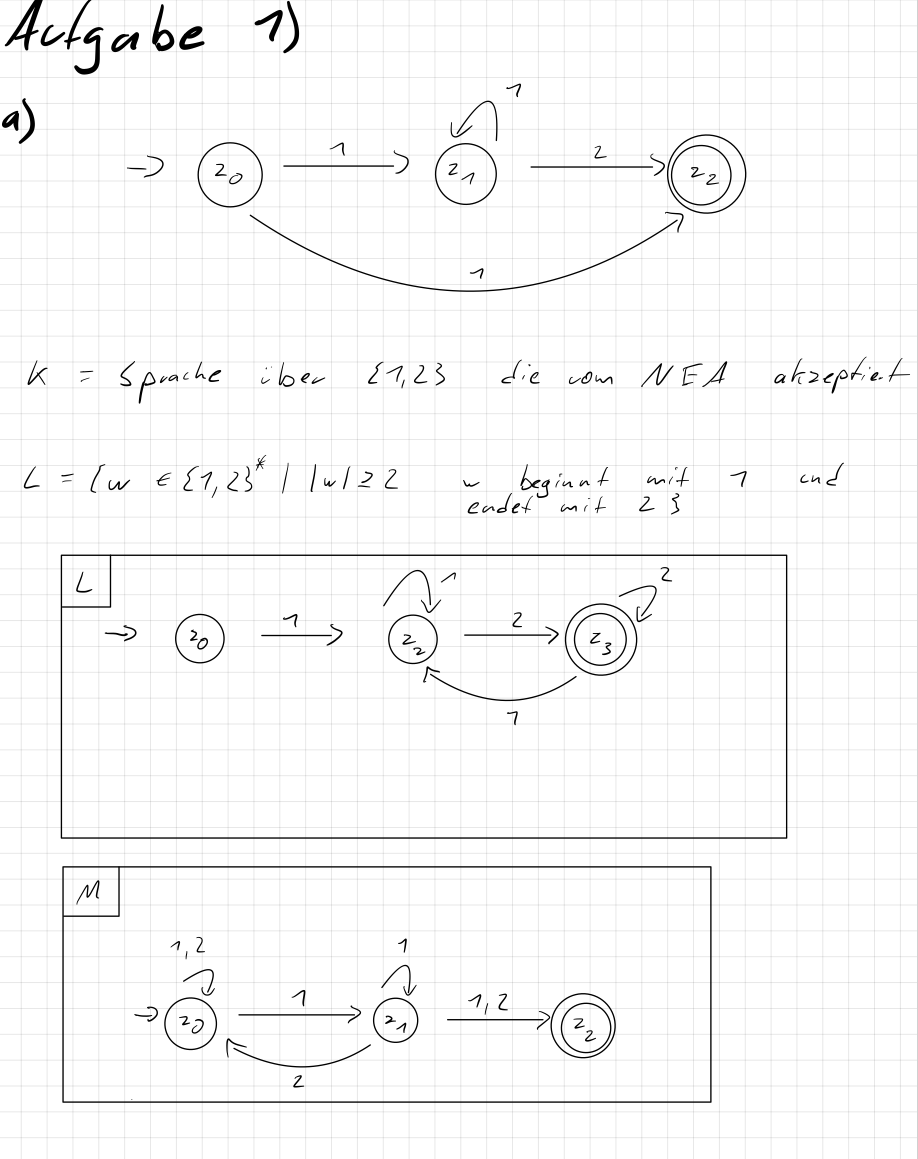 Aufgabe 1)
a)
1
1
2
z0
z1
z2
1
K = Sprache über {1,2} die vom NEA akzeptiert
L = {w ∈ {1,2}* | |w| ≥ 2 w beginnt mit 1 und
endet mit 2}
L
1
2
1
2
z0
z2
z3
1
M
1,2
1
1
1,2
z0
z1
z2
2